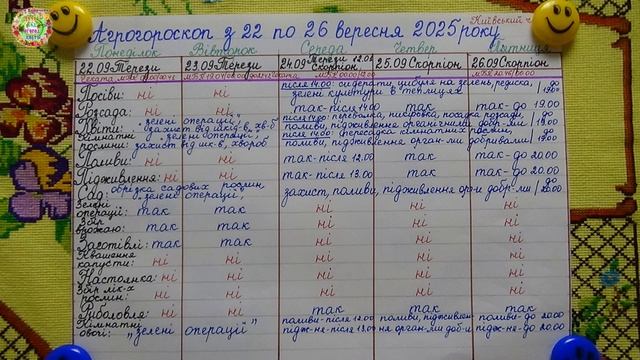 Агрогороскоп з 22 по 26 вересня 2025 року
Київський ч
Понеділок Вівторок Середа Четвер П'ятниця
22.09-Терези 23.09-Терези 24.09-Терези 12.01 Скорпіон 25.09 Скорпіон 26.09 Скорпіон
Посіви: ні ні після 14.00: сидерати, цибуля на зелень, редиска, зелені культури в теплицях до 19.00
Розсада: ні ні так-після 14.00 так так-до 19.00
Квіти: "зелені операції", захист від шкід-в, хв-б після 14.00: перевалка, пікіровка, посадка розсади, поливи, підживлення органічними добр-ми до 19.00
Кімнатні рослини: "зелені операції", захист від шк-в, хвороб після 14.00: пересадка кімнатних рослин, поливи, підживлення орган-ми добривами до 19.00
Поливи: ні ні так-після 12.00 так так-до 20.00
Підживлення: ні ні так-після 13.00 так так-до 20.00
Сад: обрізка садових рослин, "зелені операції", захист, поливи, підживлення орг-и добр-ми до 20.00
Зелені операції: так так ні ні ні
Збір врожаю: так так ні ні ні
Заготівлі: так так ні ні ні
Квашення капусти: ні ні ні ні ні
Настоянка: ні ні ні ні ні
Збір лік-х рослин: ні ні ні ні ні
Риболовля: ні ні так так так
Кімнатні овочі: "зелені операції" поливи-після 12.00 підж-ня-після 13.00 поливи, підживлення орган-ми доб-и поливи-до 20.00 підж-ня-до 20.00